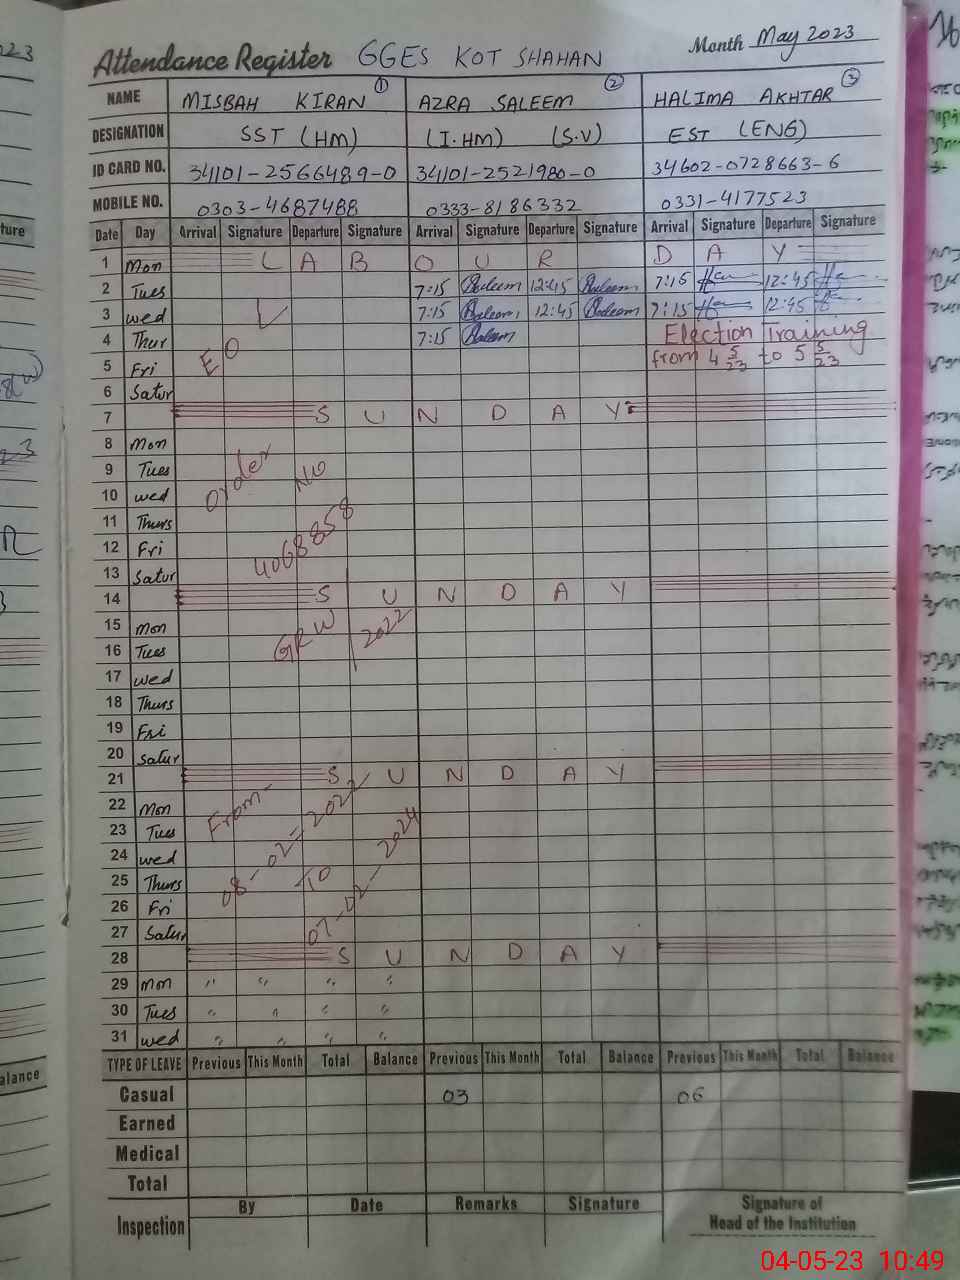 Attendance Register GGES KOT SHAHAN Month May 2023
NAME MISBAH KIRAN ① AZRA SALEEM ② HALIMA AKHTAR ③
DESIGNATION SST (HM) (I.HM) (S.V) EST (ENG)
ID CARD NO. 34101-2566489-0 34101-2521980-0 34602-0728663-6
MOBILE NO. 0303-4687488 0333-8186332 0331-4177523
Date Day Arrival Signature Departure Signature Arrival Signature Departure Signature Arrival Signature Departure Signature
1 Mon L A B O U R D A Y
2 Tues 7:15 Saleem 12:45 Saleem 7:15 12:45
3 Wed L 7:15 Saleem 12:45 Saleem 7:15 12:45
4 Thur EO 7:15 Saleem Election Training
5 Fri from 4 5/23 to 5 5/23
6 Satur
7 S U N D A Y
8 Mon
9 Tues Order No
10 Wed
11 Thurs
12 Fri 4068858
13 Satur
14 S U N D A Y
15 Mon GRW / 2022
16 Tues
17 Wed
18 Thurs
19 Fri
20 Satur
21 S U N D A Y
22 Mon From-
23 Tues 08-02-2022
24 Wed
25 Thurs To
26 Fri 07-02-2024
27 Satur
28 S U N D A Y
29 Mon " " " "
30 Tues " " " "
31 Wed " " " "
TYPE OF LEAVE Previous This Month Total Balance Previous This Month Total Balance Previous This Month Total Balance
Casual 03 06
Earned
Medical
Total
Inspection By Date Remarks Signature Signature of
Head of the Institution
04-05-23 10:49